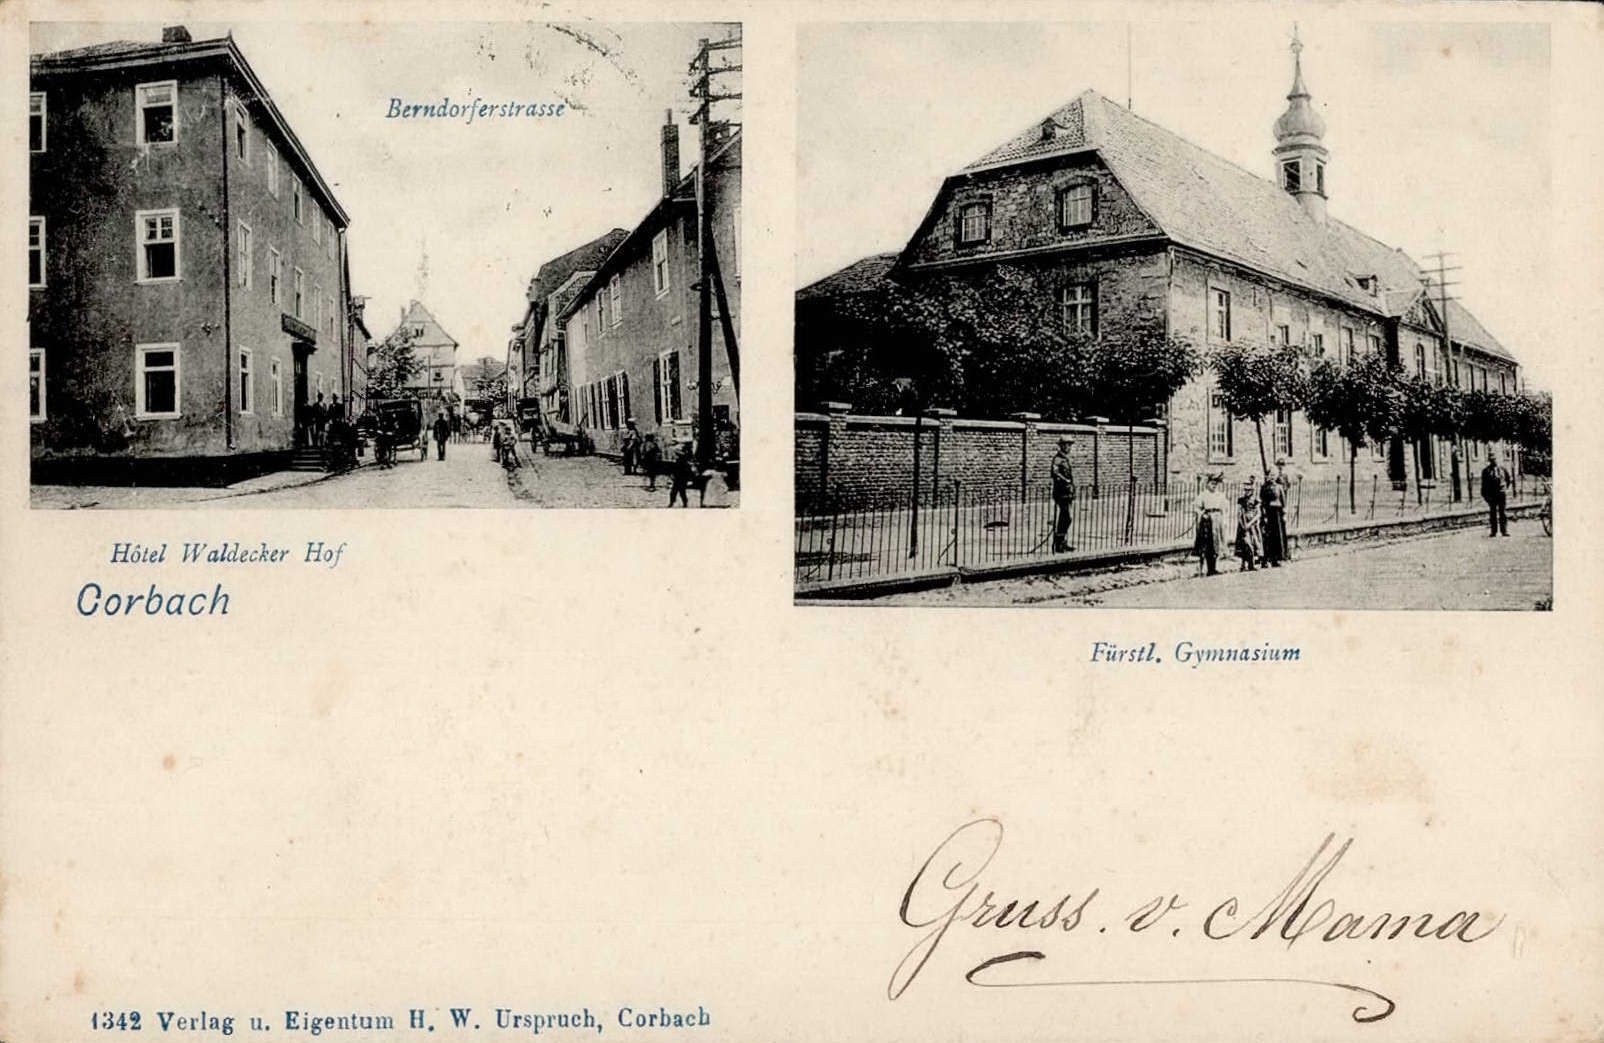 Berndorferstrasse
Hôtel Waldecker Hof
Corbach
Fürstl. Gymnasium
Gruss. v. Mama
1342 Verlag u. Eigentum H. W. Urspruch, Corbach